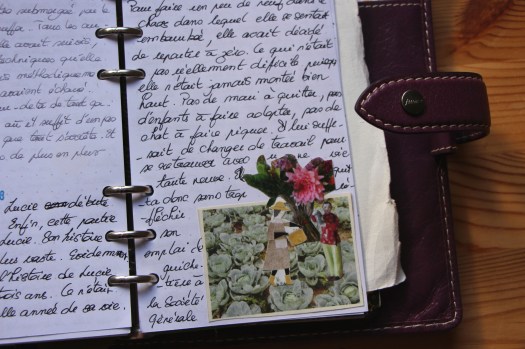 submergée par le
Tous les au
avait suivis,
techniques qu'elle
méthodiquemen
avaient échoué.
de tout ça.
où il suffit d'un pas
que tout s'écroule. Et
de plus en plus
Lucie débute
Enfin, cette partie
Lucie. Son histoire
plus vaste. Evidemm
l'histoire de Lucie
trois ans. Ce n'était
elle année de sa vie.
Pour faire un peu de neuf dans le
chaos dans lequel elle se sentait
embourbée, elle avait décidé
de repartir à zéro. Ce qui n'était
pas réellement difficile puisqu
elle n'était jamais monté bien
haut. Pas de mari à quitter, pas
d'enfants à faire adopter, pas de
chat à faire piquer. Il lui suffi-
-sait de changer de travail pour
se retrouver avec une vie
toute neuve. E
quit
ta donc sans trop
-fléchir
son
emploi de
guiche-
-tière à
la Société
Générale